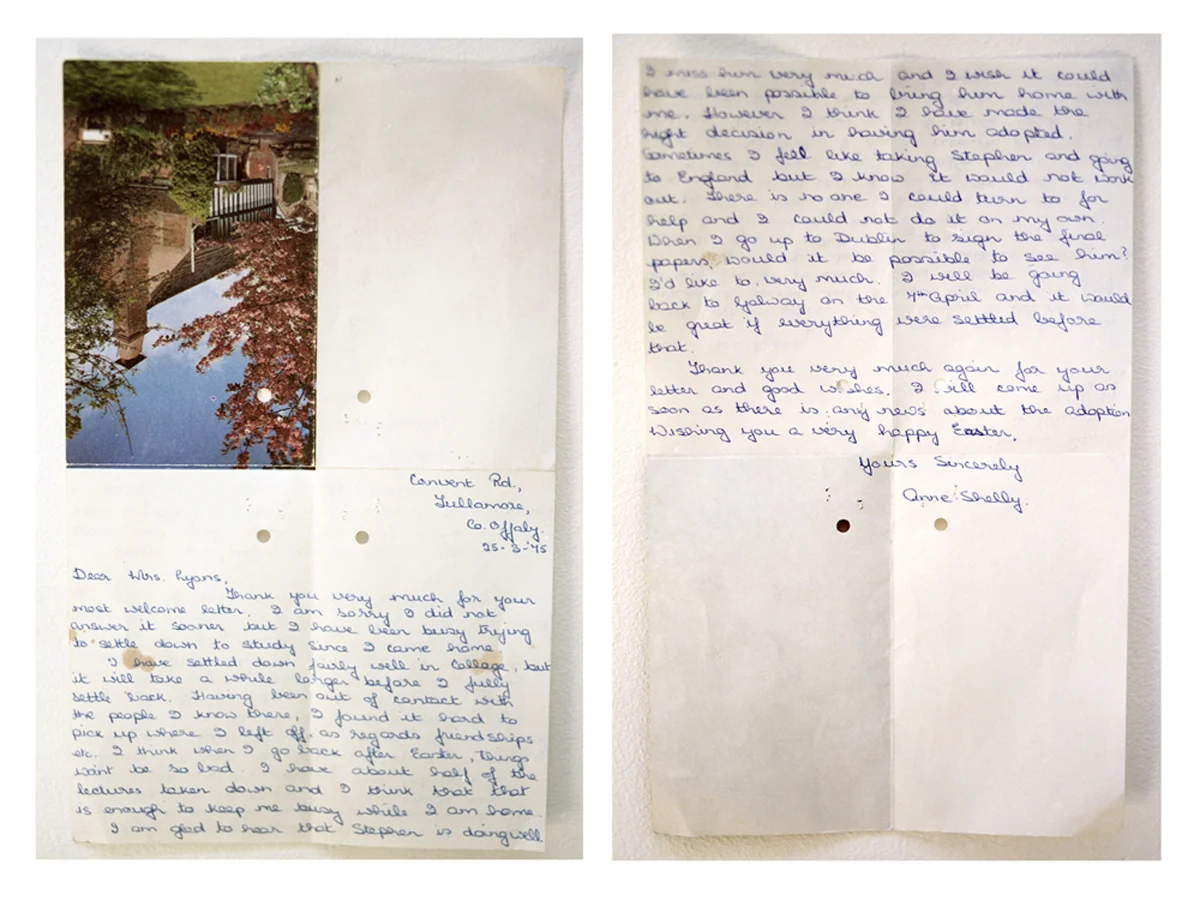 Convent Rd.,
Tullamore,
Co. Offaly.
25-3-'75
Dear Mrs. Ryans,
Thank you very much for your
most welcome letter. I am sorry I did not
answer it sooner but I have been busy trying
to settle down to study since I came home.
I have settled down fairly well in Collage, but
it will take a while longer before I fully
settle back. Having been out of contact with
the people I know there, I found it hard to
pick up where I left off, as regards friendships
etc. I think when I go back after Easter, things
wont be so bad. I have about half of the
lectures taken down and I think that that
is enough to keep me busy while I am home.
I am glad to hear that Stephen is doing well
I miss him very much and I wish it could
have been possible to bring him home with
me. However I think I have made the
right decision in having him adopted.
Sometimes I feel like taking Stephen and going
to England but I know it would not work
out. There is no one I could turn to for
help and I could not do it on my own.
When I go up to Dublin to sign the final
papers, would it be possible to see him?
I'd like to, very much. I will be going
back to Galway on the 7th April and it would
be great if everything were settled before
that.
Thank you very much again for your
letter and good wishes. I will come up as
soon as there is any news about the adoption
Wishing you a very happy Easter.
Yours Sincerely
Anne Shelly.